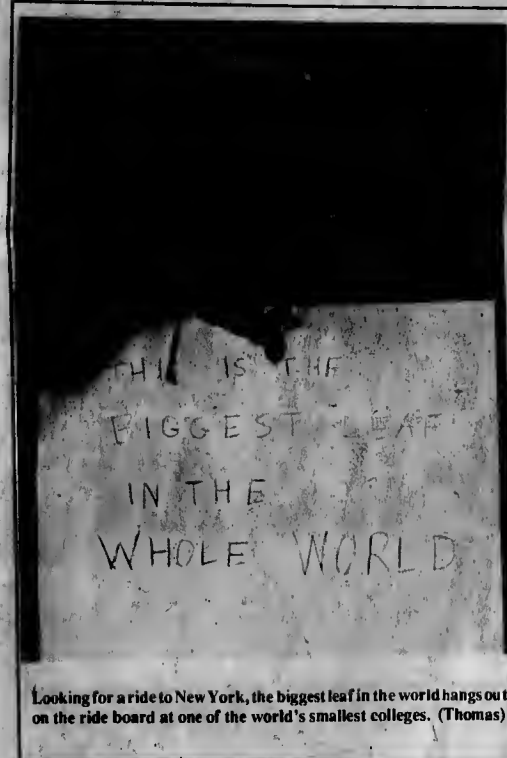 THI IS THE
BIGGEST LEAF
IN THE
WHOLE WORLD
Looking for a ride to New York, the biggest leaf in the world hangs out
on the ride board at one of the world's smallest colleges. (Thomas)